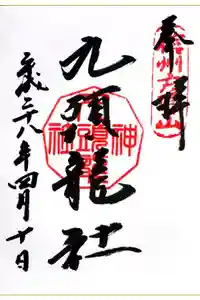 奉拝
信州戸隠山
九頭龍社
平成二十八年四月十日